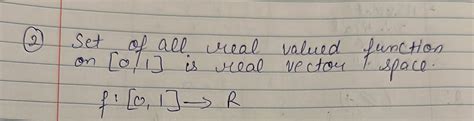 ② Set of all real valued function
on [0,1] is real vector space.
f : [0,1] → R